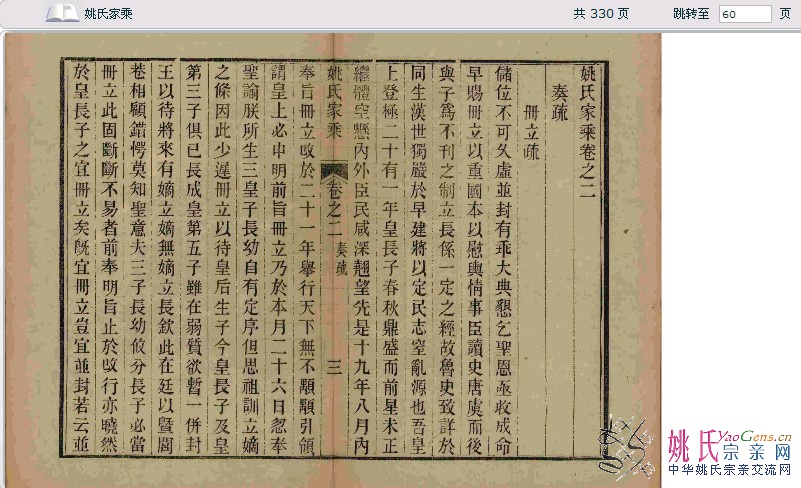 姚氏家乘
共 330 页
跳转至 60 页
姚氏家乘卷之二
奏疏
冊立疏
儲位不可久虛並封有乖大典懇乞聖恩亟收成命
早賜冊立以重國本以慰輿情事臣讀史唐虞而後
與子為不刊之制立長係一定之經故魯史致詳於
同生漢世獨嚴於早建將以定民志窒亂源也吾皇
上登極二十有一年皇長子春秋鼎盛而前星未正
繼體空懸內外臣民咸深翹望先是十九年八月內
姚氏家乘 卷之二 奏疏 三
奉旨冊立改於二十一年舉行天下無不顒顒引領
謂皇上必申明前旨冊立乃於本月二十六日忽奉
聖諭朕所生三皇子長幼自有定序但思祖訓立嫡
之條因此少遲冊立以待皇后生子今皇長子及皇
第三子俱已長成皇第五子雖在弱質欲暫一併封
王以待將來有嫡立嫡無嫡立長欽此在廷以暨閭
巷相顧錯愕莫知聖意夫三子長幼攸分長子必當
冊立此固斷斷不易者前奉明旨止於改行亦曉然
於皇長子之宜冊立矣旣宜冊立豈宜並封若云並
姚氏YaoGens.cn
宗亲网
中华姚氏宗亲交流网